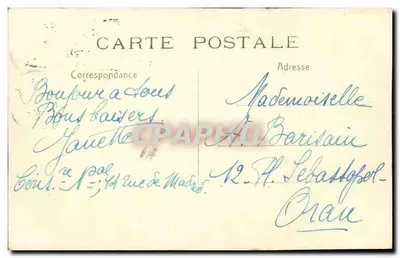 CARTE POSTALE
Correspondance
Adresse
Bonjour à tous
Bons baisers
Janette
14 rue de Madrid
Mademoiselle
A. Barisain
12. Pl. Sébastopol-
Oran
CPARAMA